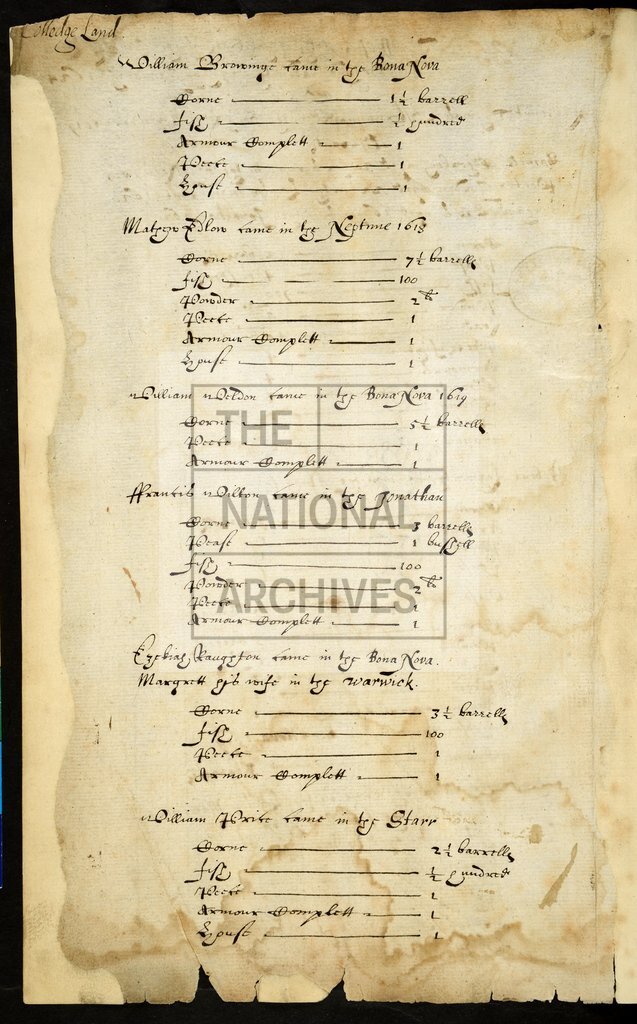 Colledge Land
William Browninge came in the Bona Nova
Corne 1 ½ barrell
fish ½ hundred
Armour Complett 1
Peece 1
House 1
Mathew Edlow came in the Neptune 1618
Corne 7 ½ barrells
fish 100
Powder 2 lb
Peece 1
Armour Complett 1
House 1
William Weldon came in the Bona Nova 1619
Corne 5 ½ barrells
Peece 1
Armour Complett 1
ffrancis Wilton came in the Jonathan
Corne 3 barrells
Pease 1 bushell
fish 100
Powder 2 lb
Peece 1
Armour Complett 1
Ezekiah Raughton came in the Bona Nova.
Margrett his wife in the Warwick.
Corne 3 ½ barrells
fish 100
Peece 1
Armour Complett 1
William Price came in the Starr
Corne 2 ½ barrells
fish ½ hundred
Peece 1
Armour Complett 1
House 1
THE
NATIONAL
ARCHIVES